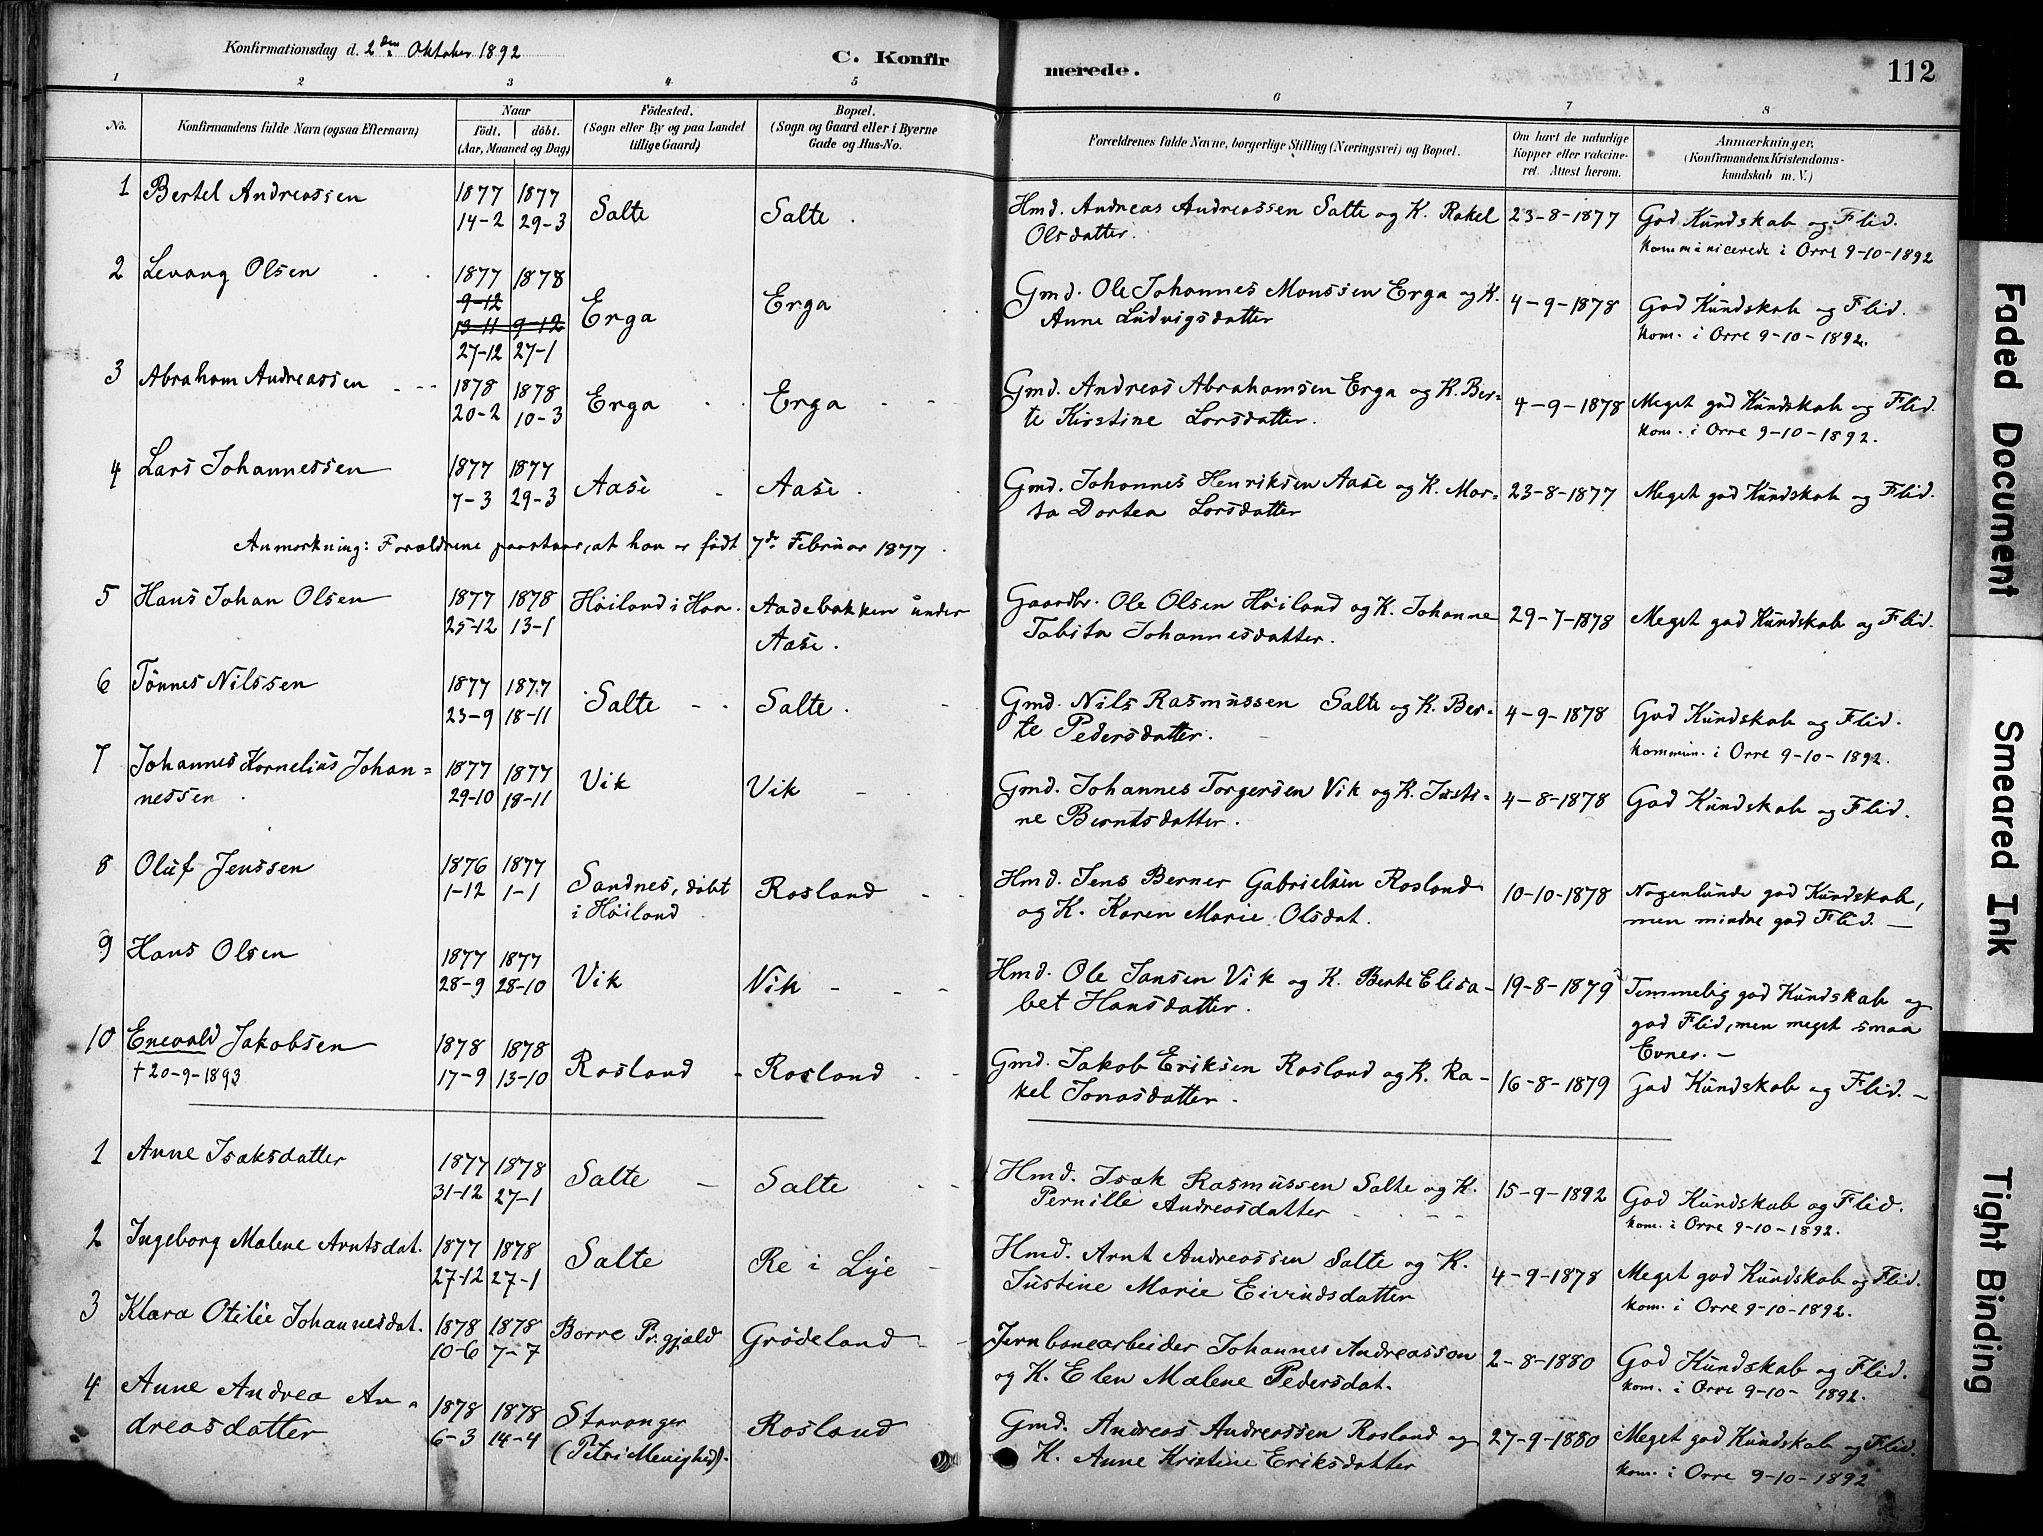 Konfirmationsdag d. 2den Oktober 1892
C. Konfir
merede.
112
1 2 3 4 5 6 7 8
No.
Konfirmandens fulde Navn (ogsaa Efternavn)
Naar
født. døbt.
(Aar, Maaned og Dag)
Fødested.
(Sogn eller By og paa Landet
tillige Gaard)
Bopæl.
(Sogn og Gaard eller i Byerne
Gade og Hus-No.
Forældrenes fulde Navne, borgerlige Stilling (Næringsvei) og Bopæl.
Om havt de naturlige
Kopper eller vakcine-
ret. Attest herom.
Anmærkninger,
(Konfirmandens Kristendoms-
kundskab m. V.)
1 Bertel Andreassen 1877 1877 Salte Salte. Hmd. Andreas Andreassen Salte og K. Rakel 23-8-1877 God Kundskab og Flid.
14-2 29-3 Olsdatter. kommunicerede i Orre 9-10-1892
2 Levang Olsen 1877 1878 Erga Erga Gmd. Ole Johannes Monssen Erga og K. 4-9-1878 God Kundskab og Flid.
9-12
13-11 9-12 Anne Ludvigsdatter kom. i Orre 9-10-1892.
27-12 27-1
3 Abraham Andreassen 1878 1878 Erga Erga Gmd. Andreas Abrahamsen Erga og K. Ber- 4-9-1878 Meget god Kundskab og Flid.
20-2 10-3 te Kirstine Larsdatter. kom. i Orre 9-10-1892.
4 Lars Johannessen 1877 1877 Aase Aase. Gmd. Johannes Henriksen Aase og K. Mar- 23-8-1877 Meget god Kundskab og Flid.
7-3 29-3 ta Dortea Larsdatter
Anmerkning: Forældrene paastaar, at han er født 7de Februar 1877.
5 Hans Johan Olsen 1877 1878 Høiland i Haa. Aadebakken under Gaardbr. Ole Olsen Høiland og K. Johanne 29-7-1878 Meget god Kundskab og Flid.
25-12 13-1 Aase. Tabita Johannesdatter.
6 Tønnes Nilssen 1877 1877 Salte Salte. Gmd. Nils Rasmussen Salte og K. Ber- 4-9-1878 God Kundskab og Flid.
23-9 18-11 te Pedersdatter. kommun. i Orre 9-10-1892.
7 Johannes Kornelius Johan= 1877 1877 Vik Vik Gmd. Johannes Torgersen Vik og K. Justi- 4-8-1878 God Kundskab og Flid.
nessen. 29-10 18-11 ne Berntsdatter.
8 Oluf Jenssen 1876 1877 Sandnes, døbt Rosland Hmd. Jens Berner Gabrielsen Rosland 10-10-1878 Nogenlunde god Kundskab,
1-12 1-1 i Høiland og K. Karen Marie Olsdat. men mindre god Flid.
9 Hans Olsen 1877 1877 Vik Vik Hmd. Ole Jansen Vik og K. Berte Elisa- 19-8-1879 Temmelig god Kundskab og
28-9 28-10 bet Hansdatter. god Flid, men meget smaa
Evner.
10 Enevald Jakobsen 1878 1878 Rosland Rosland Gmd. Jakob Eriksen Rosland og K. Ra- 16-8-1879 God Kundskab og Flid.
† 20-9-1893 17-9 13-10 kel Jonasdatter.
1 Anne Isaksdatter 1877 1878 Salte Salte Hmd. Isak Rasmussen Salte og K. 15-9-1892 God Kundskab og Flid.
31-12 27-1 Pernille Andreasdatter kom. i Orre 9-10-1892.
2 Ingeborg Malene Arntsdat. 1877 1878 Salte Re i Lye Hmd. Arnt Andreassen Salte og K. 4-9-1878 Meget god Kundskab og Flid.
27-12 27-1 Justine Marie Eivindsdatter kom. i Orre 9-10-1892.
3 Klara Otilie Johannesdat. 1878 1878 Borre Pr.gjæld Grødeland Jernbanearbeider Johannes Andreassen 2-8-1880 God Kundskab og Flid.
10-6 7-7 og K. Elen Malene Pedersdat. kom. i Orre 9-10-1892.
4 Anne Andrea An= 1878 1878 Stavanger Rosland Gmd. Andreas Andreassen Rosland og 27-9-1880 Meget god Kundskab og Flid.
dreasdatter 6-3 14-4 (Petri Menighed). K. Anne Kristine Eriksdatter kom. i Orre 9-10-1892
Faded Document
Smeared Ink
Tight Binding